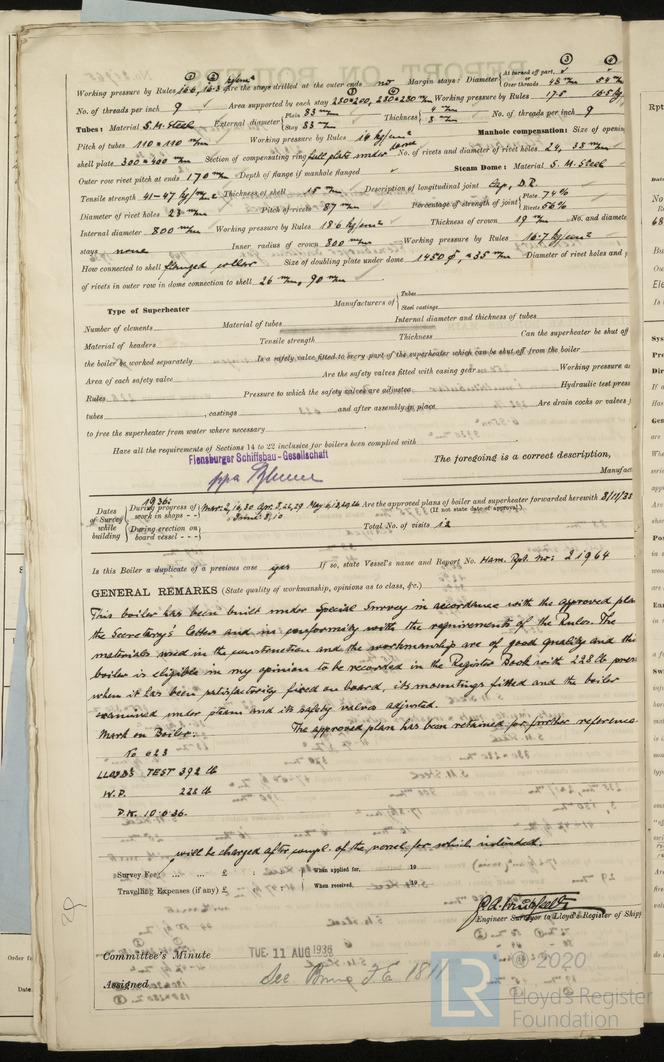 ① ② kg/cm² ③ ④
Working pressure by Rules 16.6, 16.3 Are the stays drilled at the outer ends no Margin stays: Diameter { At turned off part, ✓ ✓ Over threads 48 m/m 54 m/m
No. of threads per inch 9 ✓ Area supported by each stay 250×200, 230×230 m/m Working pressure by Rules 17.5 16.5 kg
Tubes: Material S.M. Steel External diameter { Plain 83 m/m Stay 83 m/m Thickness { 4 m/m 8 m/m No. of threads per inch 9
Pitch of tubes 110 × 110 m/m Working pressure by Rules 19 kg/cm² Manhole compensation: Size of opening
shell plate 300 × 400 m/m Section of compensating ring full plate under dome No. of rivets and diameter of rivet holes 24, 38 m/m
Outer row rivet pitch at ends 170 m/m Depth of flange if manhole flanged ✓ Steam Dome: Material S. M. Steel
Tensile strength 41–47 kg/m/m² Thickness of shell 15 m/m Description of longitudinal joint Lap, D.R.
Diameter of rivet holes 23 m/m Pitch of rivets 87 m/m Percentage of strength of joint { Plate 74 % Rivets 56 %
Internal diameter 800 m/m Working pressure by Rules 18.6 kg/cm² Thickness of crown 19 m/m No. and diameter
stays none Inner radius of crown 800 m/m Working pressure by Rules 16.7 kg/cm²
How connected to shell flanged collar Size of doubling plate under dome 1450 φ, × 35 m/m Diameter of rivet holes and
of rivets in outer row in dome connection to shell 26 m/m, 90 m/m
Type of Superheater Manufacturers of { Tubes Steel castings
Number of elements Material of tubes Internal diameter and thickness of tubes
Material of headers Tensile strength Thickness Can the superheater be shut off
the boiler be worked separately Is a safety valve fitted to every part of the superheater which can be shut off from the boiler
Area of each safety valve Are the safety valves fitted with easing gear Working pressure as
Rules Pressure to which the safety valves are adjusted Hydraulic test press
tubes , castings and after assembly in place Are drain cocks or valves
to free the superheater from water where necessary
Have all the requirements of Sections 14 to 22 inclusive for boilers been complied with
Flensburger Schiffsbau-Gesellschaft
The foregoing is a correct description,
ppa
Manufac
Dates of Survey while building { During progress of work in shops - - 1936: Mar: 2, 16, 30 Apr. 3, 22, 29 May 6, 13, 20, 26 June: 8, 10 Are the approved plans of boiler and superheater forwarded herewith 8/11/35 (If not state date of approval.)
During erection on board vessel - - - Total No. of visits 12
Is this Boiler a duplicate of a previous case yes If so, state Vessel's name and Report No. Ham. Rpt. no: 21964
GENERAL REMARKS (State quality of workmanship, opinions as to class, &c.)
This boiler has been built under Special Survey in accordance with the approved plan
the Secretary's letters and in conformity with the requirements of the Rules. The
materials used in the construction and the workmanship are of good quality and the
boiler is eligible in my opinion to be recorded in the Register Book with 228 lb press
when it has been satisfactorily fixed on board, its mountings fitted and the boiler
examined under steam and its safety valves adjusted.
Mark on Boiler: The approved plan has been retained for further reference
No 623
LLOYD'S TEST 392 lb
W.P. 228 lb
P.K. 10.6.36.
will be charged after compl. of the vessel for which intended.
Survey Fee ... ... ... £ : : When applied for, 19
Travelling Expenses (if any) £ : : When received, 19
Engineer Surveyor to Lloyd's Register of Ship
Committee's Minute TUE. 11 AUG 1936
Assigned See F.E. 1811
LR © 2020
Lloyd's Register
Foundation